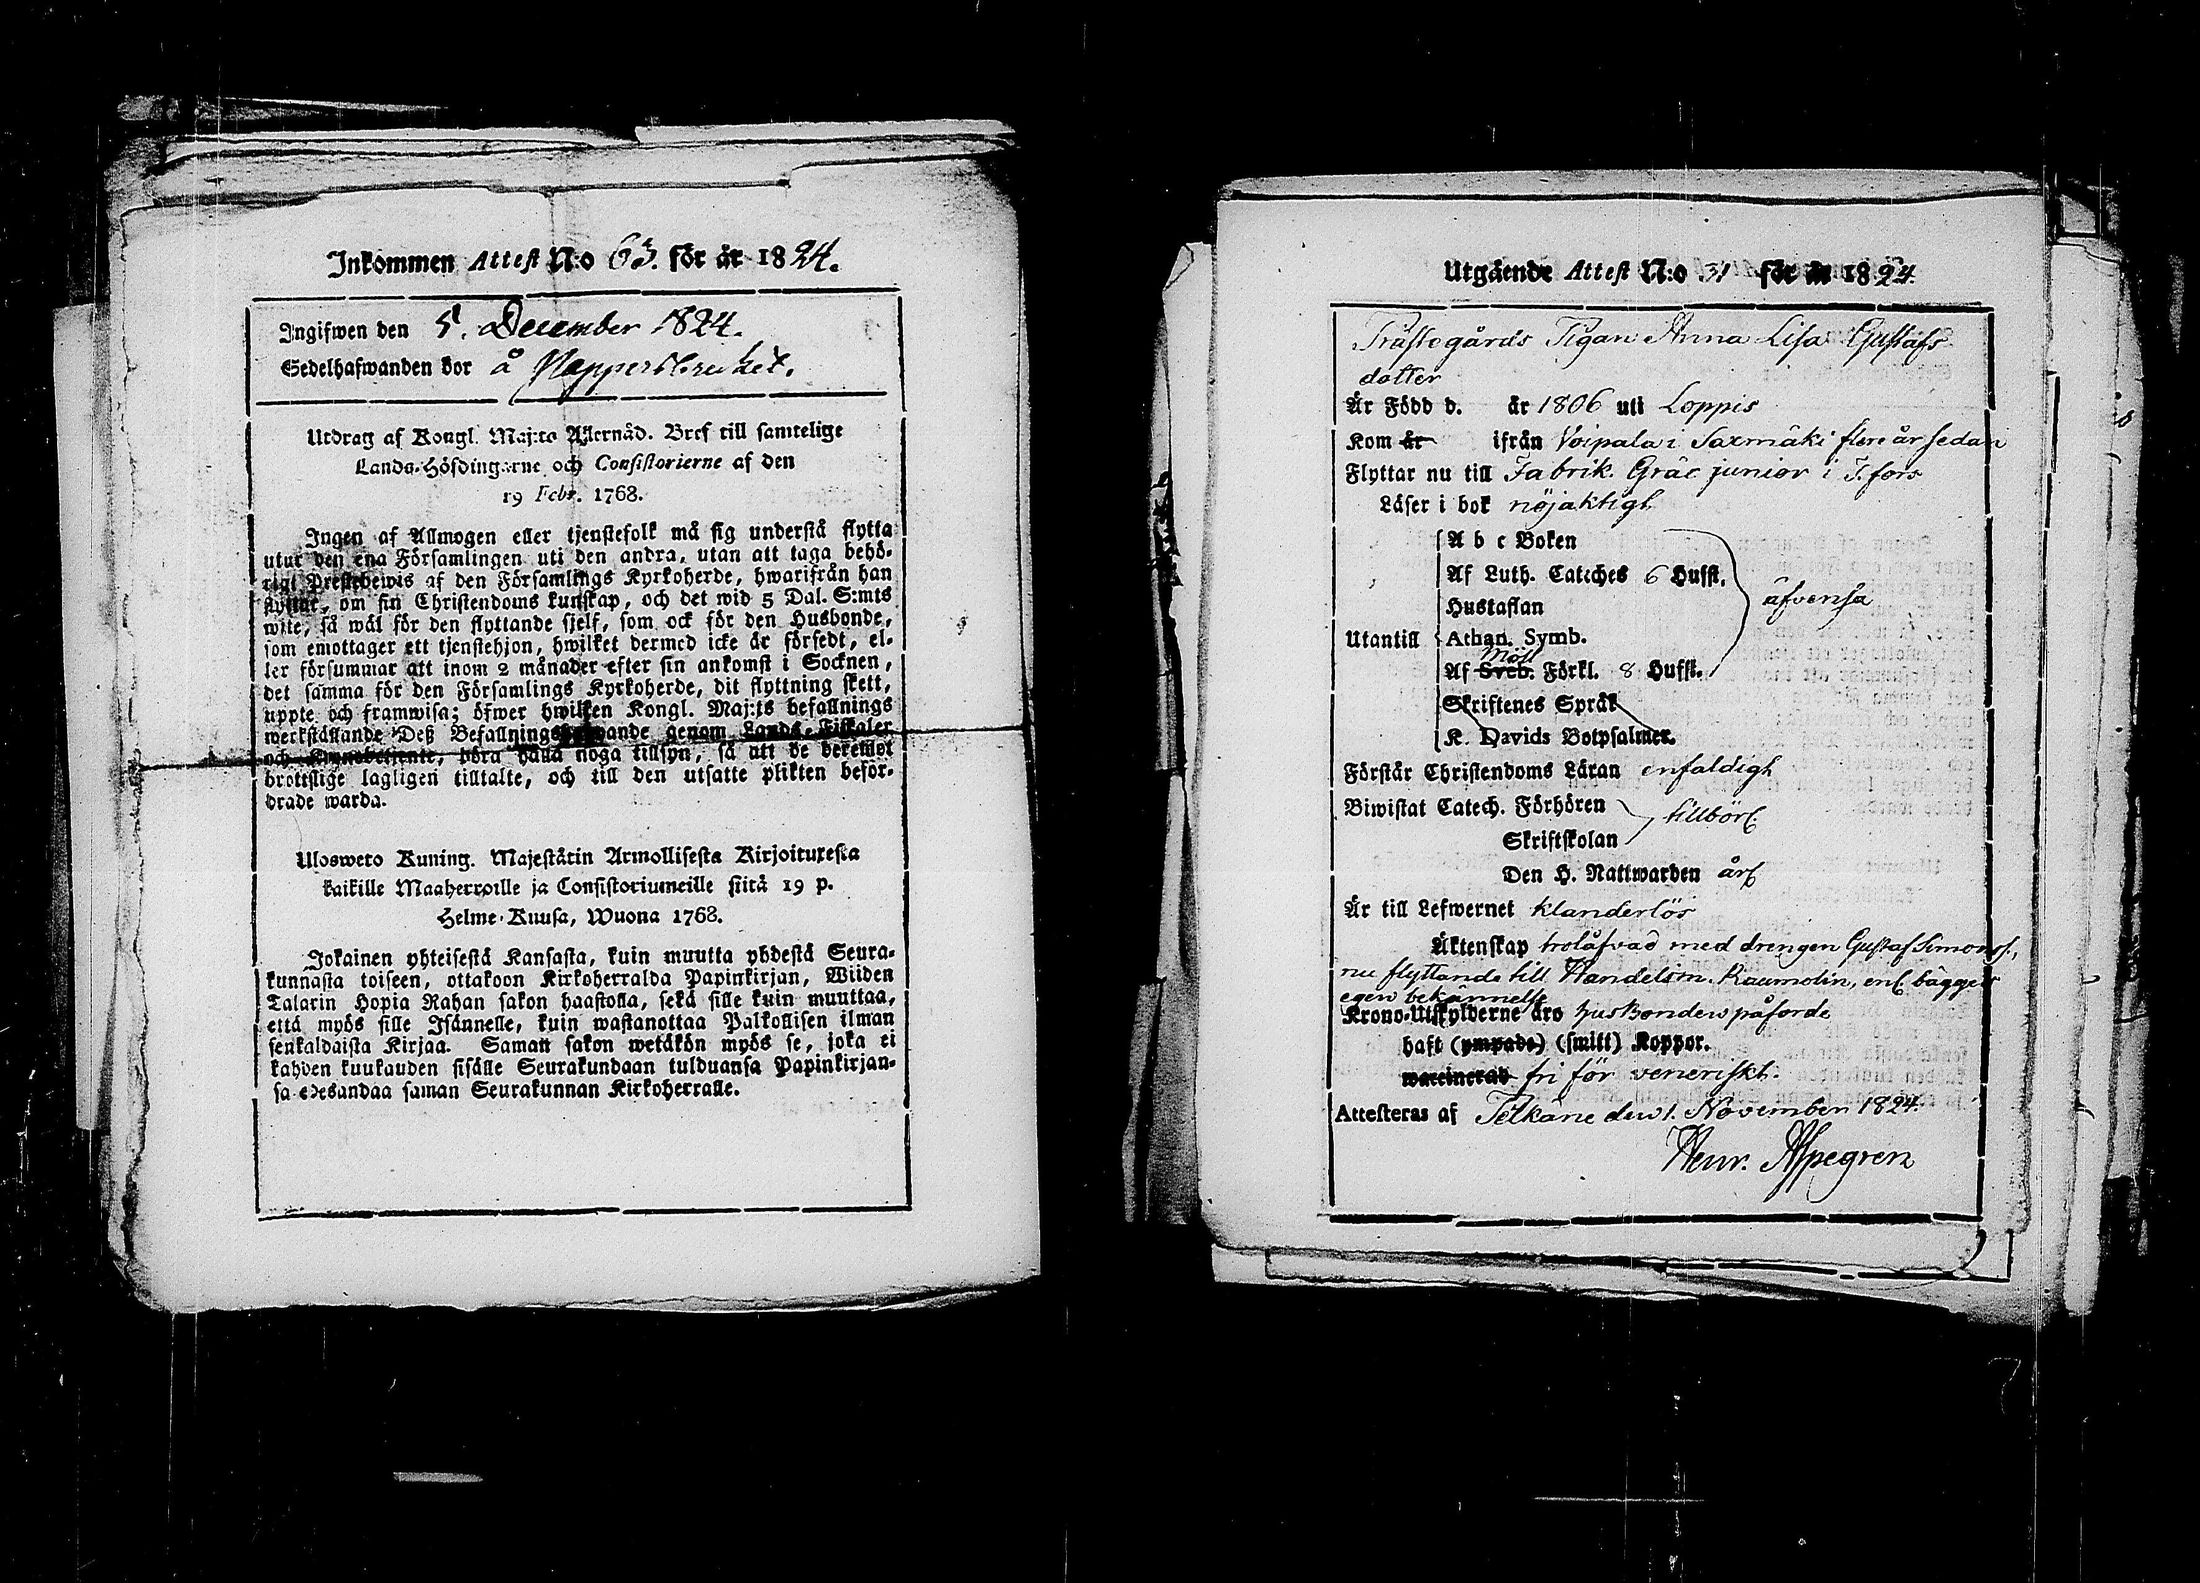 Inkommen Attest N:o 63. för år 1824.
Ingifwen den 5. December 1824.
Sedelhafwanden bor å Pappersbruket.
Utdrag af Kongl. Maj:ts Allernåd. Bref till samtelige
Lands-Höfdingarne och Consistorierne af den
19 Febr. 1768.
Ingen af Allmogen eller tjenstefolk må sig understå flytta
utur den ena Församlingen uti den andra, utan att taga behö-
rigt Prestebewis af den Församlings Kyrkoherde, hwarifrån han
flyttar, om sin Christendoms kunskap, och det wid 5 Dal. S:mts
wite, så wäl för den flyttande sjelf, som ock för den Husbonde,
som emottager ett tjenstehjon, hwilket dermed icke är försedt, el-
ler försummar att inom 2 månader efter sin ankomst i Socknen,
det samma för den Församlings Kyrkoherde, dit flyttning skett,
uppte och framwisa; öfwer hwilken Kongl. Maj:ts befallnings
werkställande Deß Befallningshafwande genom Lands-Fiskaler
och Kronobetjente, böra hålla noga tillsyn, så att de deremot
brottslige lagligen tilltalte, och till den utsatte plikten beför-
drade warda.
Ulosweto Kuning. Majestätin Armollisesta Kirjoituxesta
kaikille Maaherroille ja Consistoriumeille siitä 19 p.
Helme-Kuusa, Wuona 1768.
Jokainen yhteisestä Kansasta, kuin muutta yhdestä Seura-
kunnasta toiseen, ottakoon Kirkoherralda Papinkirjan, Wiiden
Talarin Hopia Rahan sakon haastolla, sekä sille kuin muuttaa,
että myös sille Isännelle, kuin wastanottaa Palkollisen ilman
senkaldaista Kirjaa. Saman sakon wetäkön myös se, joka ei
kahden kuukauden sisälle Seurakundaan tulduansa Papinkirjan-
sa edesandaa saman Seurakunnan Kirkoherralle.
Utgående Attest N:o 31 för år 1824.
Prästegårds Pigan Anna Lisa Gustafs
dotter
Är Född d. år 1806 uti Loppis
Kom år ifrån Voipala i Saxmäki flere år sedan
Flyttar nu till Fabrik. Gräe junior i T.fors
Läser i bok nöjaktigt
A b c Boken
Af Luth. Catches 6 Hufst.
Hustaflan
äfvensa
Utantill Athan. Symb.
Möll
Af Sveb. Förkl. 8 Hufst.
Skriftenes Språk
K. Davids Botpsalmer.
Förstår Christendoms Läran enfaldigt
Biwistat Catech. Förhören
tillbörl.
Skriftskolan
Den H. Nattwarden årl.
Är till Lefwernet klanderlös
Äktenskap trolåfvad med drengen Gustaf Simonss.,
nu flyttande till Handelsm. Raumolin, enl. bägges
egen bekännelse
Krono-Utskylderne äro husbonden påförde
haft (ympade) (smitt) Koppor.
waccinerad fri för veneriskt.
Attesteras af Pelkäne den 1. November 1824.
Henr. Aspegren